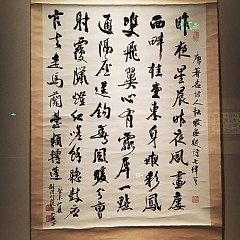 昨夜星辰昨夜風畫廔
西畔桂堂東身無彩鳳
雙飛翼心有靈犀一點
通隔座送鈎春酒暖分曹
射覆蠟燈紅嗟余聽鼓應
官去走馬蘭臺類轉蓬